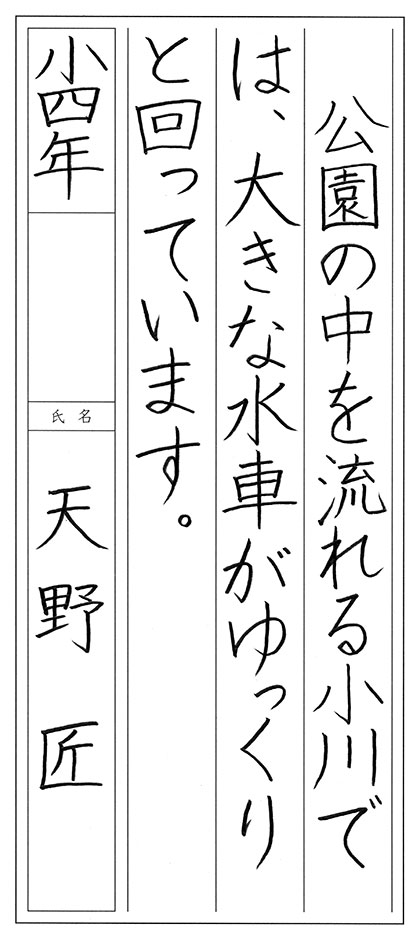 公園の中を流れる小川で
は、大きな水車がゆっくり
と回っています。
小四年
氏名
天野匠